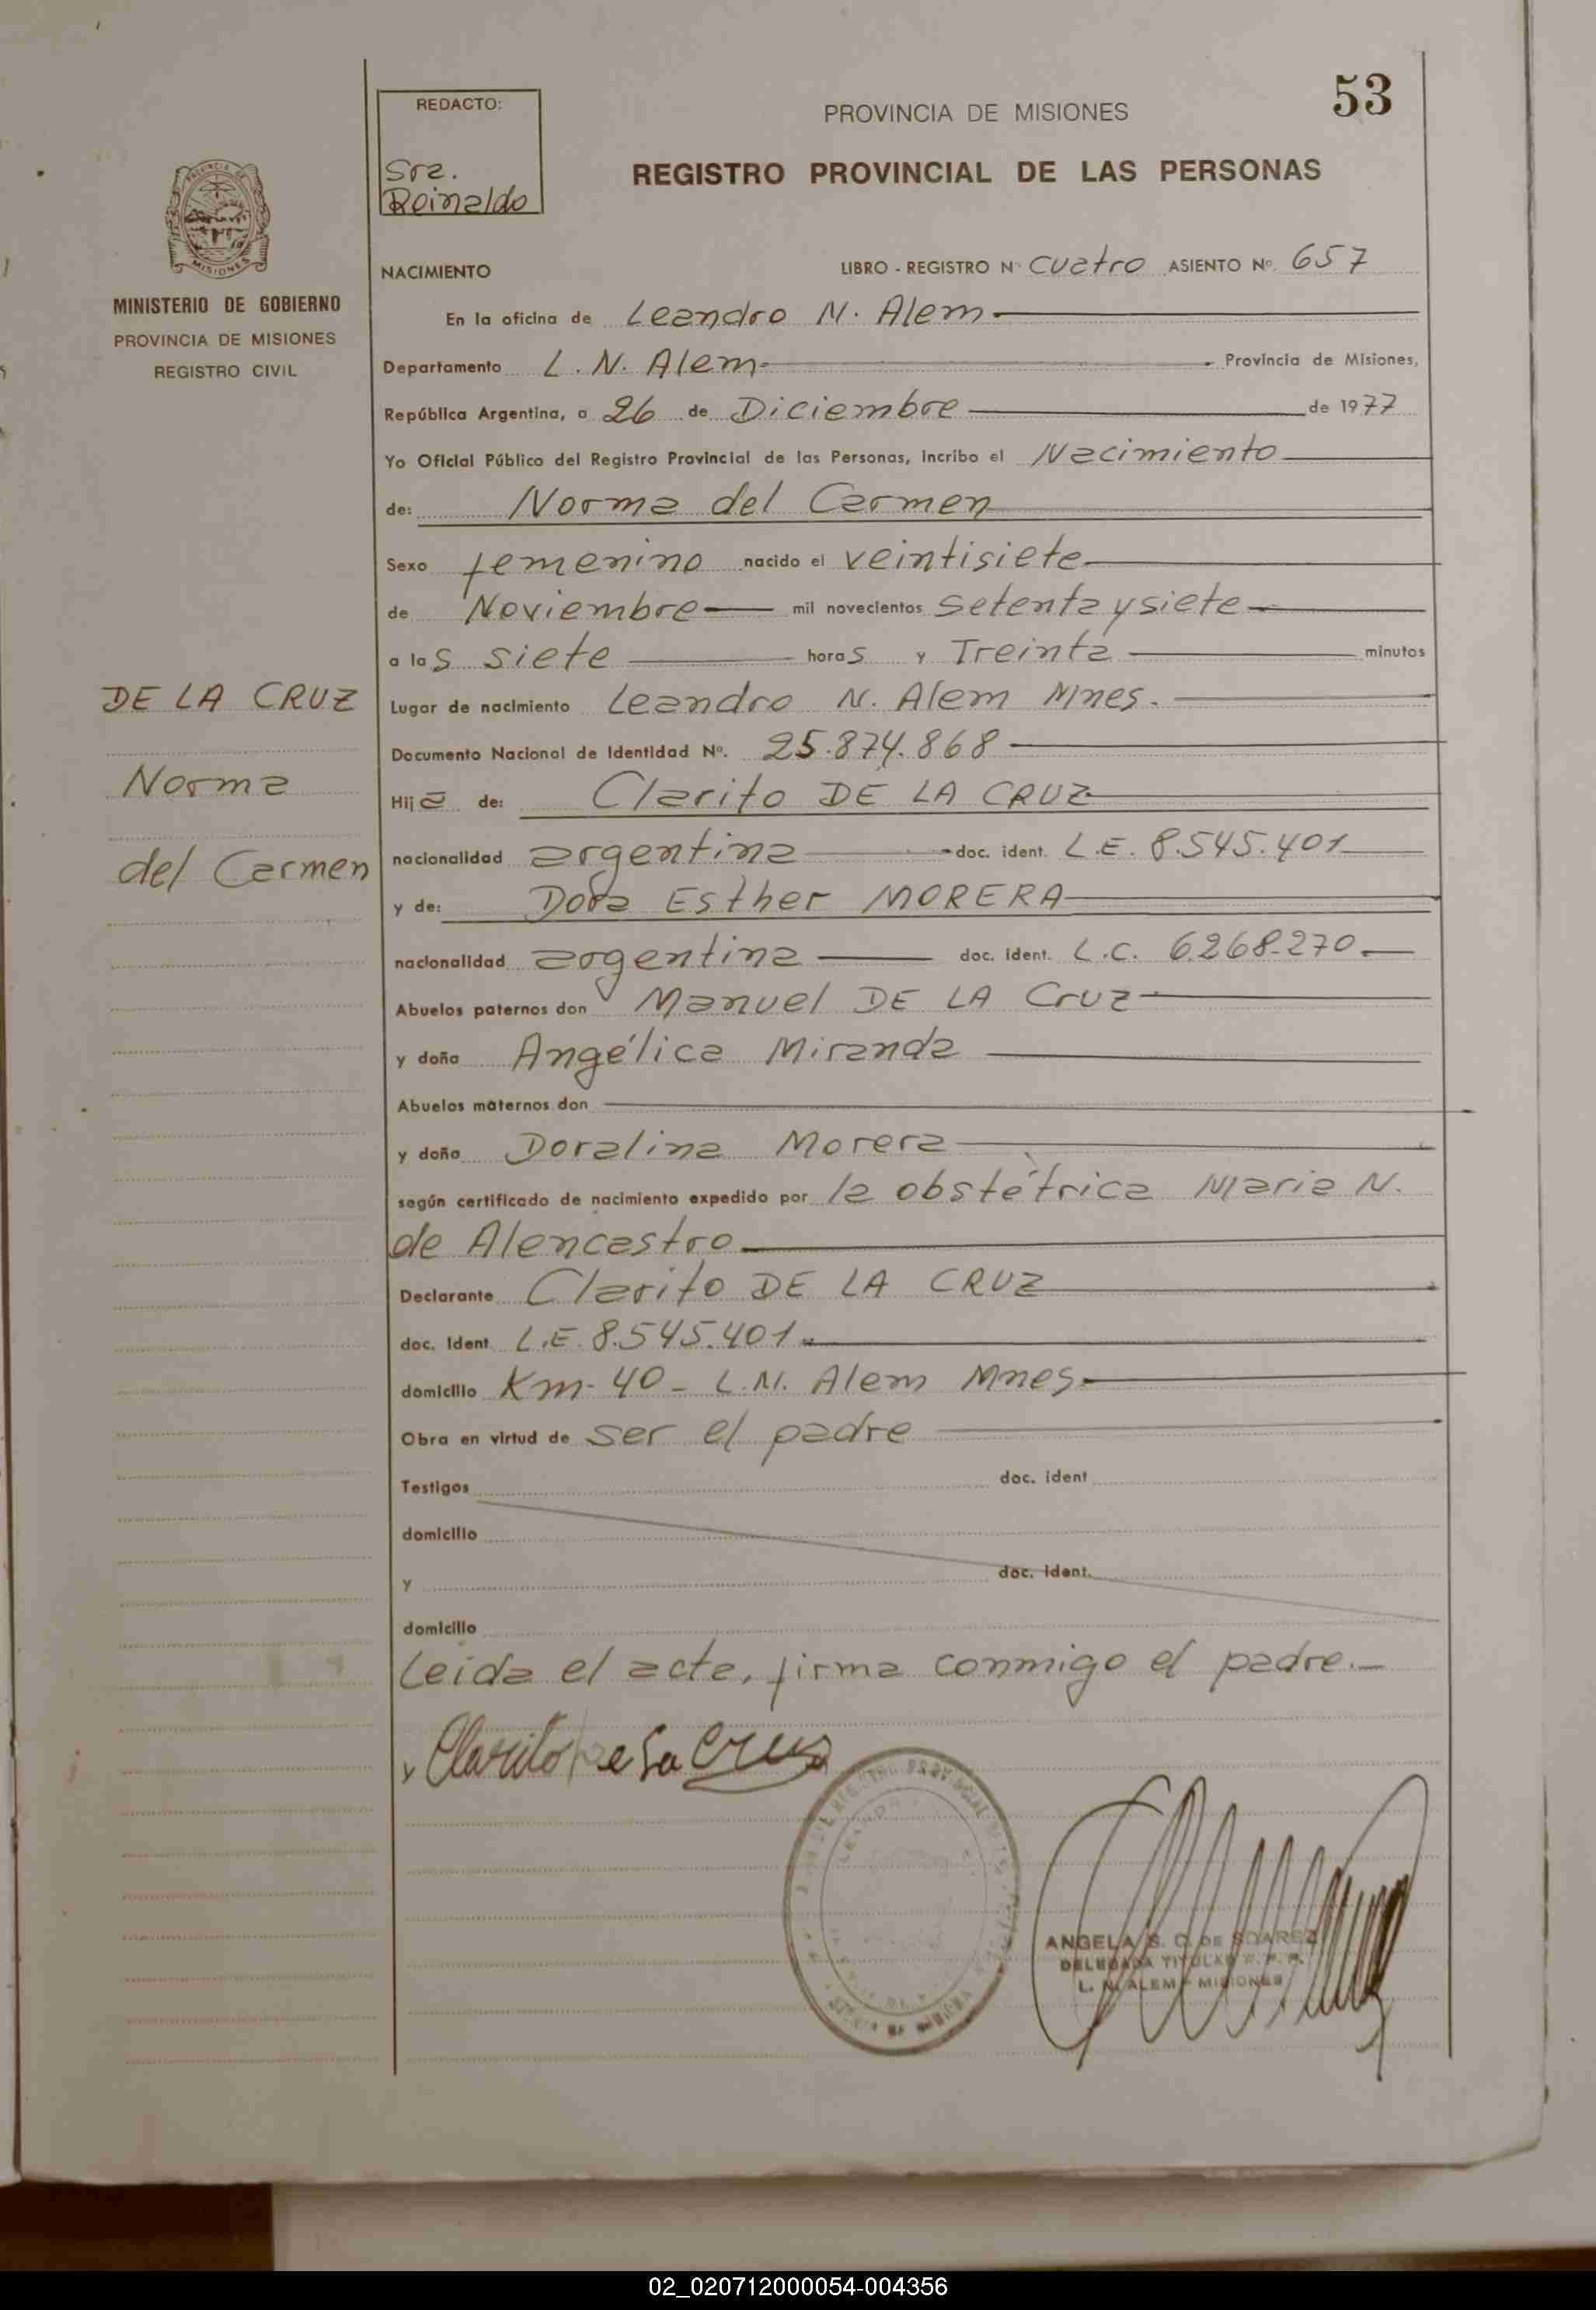 53
REDACTO:
Sra.
Reinaldo
PROVINCIA DE MISIONES
REGISTRO PROVINCIAL DE LAS PERSONAS
MISIONES
MINISTERIO DE GOBIERNO
PROVINCIA DE MISIONES
REGISTRO CIVIL
NACIMIENTO LIBRO - REGISTRO N° cuatro ASIENTO Nº. 657
En la oficina de Leandro N. Alem
Departamento L. N. Alem Provincia de Misiones,
República Argentina, a 26 de Diciembre de 1977
Yo Oficial Público del Registro Provincial de las Personas, incribo el Nacimiento
de: Norma del Carmen
Sexo femenino nacido el veintisiete
de Noviembre mil novecientos setenta y siete
a las siete horas y Treinta minutos
DE LA CRUZ
Norma
del Carmen
Lugar de nacimiento Leandro N. Alem Mnes.
Documento Nacional de Identidad Nº. 25.874.868
Hija de: Clarito DE LA CRUZ
nacionalidad argentina doc. ident. L.E. 8.545.401
y de: Dora Esther MORERA
nacionalidad argentina doc. ident. L.C. 6.268.270
Abuelos paternos don Manuel DE LA Cruz
y doña Angélica Miranda
Abuelos maternos don
y doña Doralina Morera
según certificado de nacimiento expedido por la obstétrica Maria N.
de Alencastro
Declarante Clarito DE LA CRUZ
doc. Ident. L.E. 8.545.401
domicilio Km- 40 - L.N. Alem Mnes
Obra en virtud de ser el padre
Testigos doc. ident
domicilio
y doc. ident.
domicilio
Leida el acta, firma conmigo el padre.-
Clarito de la Cruz
ANGELA S. C. DE SOAREZ
DELEGADA TITULAR R. P. P.
L. N. ALEM - MISIONES
02_020712000054-004356